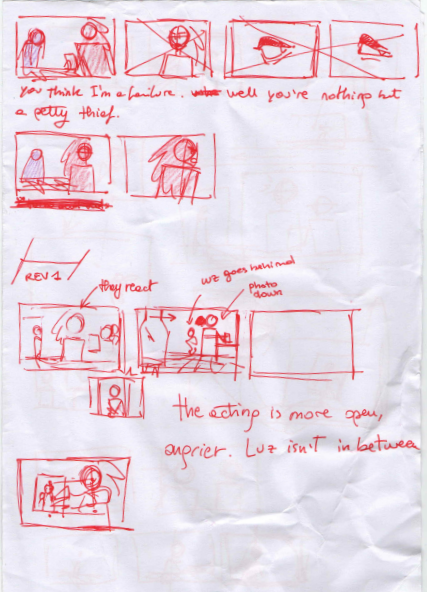 you think I'm a failure. well you're nothing but
a petty thief.
REV 1
they react
Luz goes behind
photo
down
the acting is more open,
angrier. Luz isn't in between